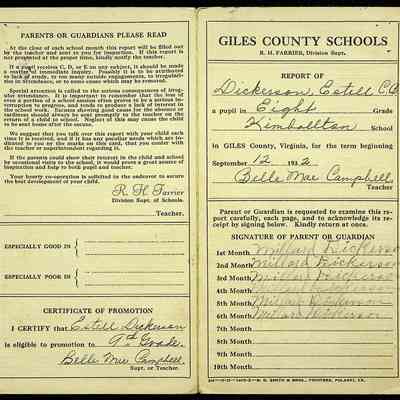 PARENTS OR GUARDIANS PLEASE READ
At the close of each school month this report will be filled out
by the teacher and sent to you for inspection. If this report is
not presented at the proper time, kindly notify the teacher.
If a pupil receives C, D, or E on any subject, it should be made
a matter of immediate inquiry. Possibly it is to be attributed
to lack of study, to too many outside engagements, to irregulari-
ties in attendance, or to some cause which may be removed.
Special attention is called to the serious consequences of irregu-
lar attendance. It is important to remember that the loss of
even a portion of a school session often proves to be a serious in-
terruption to progress, and tends to produce a lack of interest in
the school work. Excuses showing good cause for absence or
tardiness should always be sent promptly to the teacher on the
return of a child to school. Neglect of this may cause the child
to be sent home after the second.
We suggest that you talk over this report with your child each
time it is received, and if it has any peculiar which are in-
dicated to you on this card, that you consult with
the teacher or superintendent regarding it.
If the parents could show their interest in the child and school
by occasional visits to the school, it would prove a great source of
inspiration and help to both pupil and teacher.
Your hearty co-operation is solicited in the endeavor to secure
the best development of your child.
R. H. Farrier
Division Supt. of Schools.
Teacher.
ESPECIALLY GOOD IN
ESPECIALLY POOR IN
CERTIFICATE OF PROMOTION
I CERTIFY that Estell Dickerson
is eligible to promotion to 9th Grade.
Belle Mae Campbell
Supt. or Teacher.
GILES COUNTY SCHOOLS
R. H. FARRIER, Division Supt.
REPORT OF
Dickerson, Estell
a pupil in Eight Grade
Kimballton School
in GILES County, Virginia, for the term beginning
September 12 1932
Belle Mae Campbell
Teacher
Parent or Guardian is requested to examine this re-
port carefully, each page, and to acknowledge its re-
ceipt by signing below. Kindly return at once.
SIGNATURE OF PARENT OR GUARDIAN
1st Month Millard Dickerson
2nd Month Millard Dickerson
3rd Month Millard Dickerson
4th Month Millard Dickerson
5th Month Millard Dickerson
6th Month Millard Dickerson
7th Month
8th Month
9th Month
10th Month
SMITH & BROS., PRINTERS, PULASKI, VA.